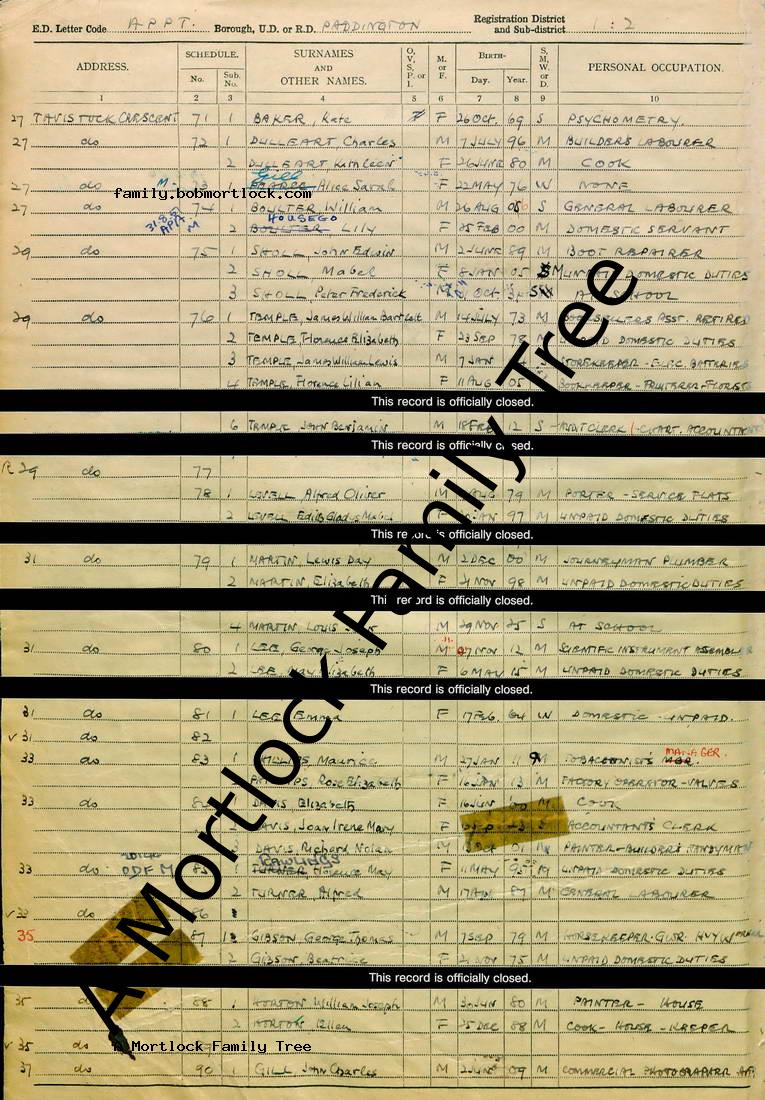 E.D. Letter Code APPT. Borough, U.D. or R.D. PADDINGTON Registration District and Sub-district 1:2
ADDRESS. SCHEDULE. No. Sub. No. SURNAMES AND OTHER NAMES. O, V, S, P, or I. M. or F. BIRTH— Day. Year. S, M, W, or D. PERSONAL OCCUPATION.
1 2 3 4 5 6 7 8 9 10
27 TAVISTOCK CRESCENT 71 1 BAKER, Kate F 26 OCT 69 S PSYCHOMETRY
27 do 72 1 DULLEART Charles M 7 JULY 96 M BUILDERS LABOURER
2 DULLEART Kathleen F 26 JUNE 80 M COOK
Gill
27 do M 73 1 PEARCE Alice Sarah F 22 MAY 76 W NONE
family.bobmortlock.com
27 do 74 1 BOULTER William M 26 AUG 05 S GENERAL LABOURER
HOUSEGO
M 2 BOULTER Lily F 25 FEB 00 M DOMESTIC SERVANT
29 do 75 1 SHOLL John Edwin M 2 JUNE 89 M BOOT REPAIRER
2 SHOLL Mabel F 8 JAN 05 M UNPAID DOMESTIC DUTIES
3 SHOLL Peter Frederick M OCT SCHOOL
29 do 76 1 TEMPLE, James William Bartlett M 14 JULY 73 M ASST. RETIRED
2 TEMPLE, Florence Elizabeth F 23 SEP 78 DOMESTIC DUTIES
3 TEMPLE, James William Lewis M 7 JAN STOREKEEPER - ELEC. BATTERIES
4 TEMPLE, Florence Lilian F 11 AUG 05 BOOKKEEPER - FRUITERER - FLORIST
This record is officially closed.
6 TEMPLE, John Benjamin M 18 FEB 12 S AUDIT CLERK - CHART. ACCOUNTANT
This record is officially closed.
R 29 do 77
78 1 LEVELL Alfred Oliver M AUG 79 M PORTER - SERVICE FLATS
2 LEVELL Edith Gladys Mabel F JAN 97 M UNPAID DOMESTIC DUTIES
This record is officially closed.
31 do 79 1 MARTIN, Lewis Day M 2 DEC 00 M JOURNEYMAN PLUMBER
2 MARTIN, Elizabeth F 21 NOV 98 M UNPAID DOMESTIC DUTIES
This record is officially closed.
4 MARTIN Louis M 29 NOV 25 S AT SCHOOL
31 do 80 1 LEE George Joseph M 27 NOV 12 M SCIENTIFIC INSTRUMENT ASSEMBLER
2 LEE, May Elizabeth F 6 MAY 15 M UNPAID DOMESTIC DUTIES
This record is officially closed.
31 do 81 1 LEE Emma F 17 FEB 64 W DOMESTIC - UNPAID.
v 31 do 82
MANAGER.
33 do 83 1 PHILLIPS Maurice M 27 JAN 11 M TOBACCONISTS MGR.
PHILLIPS Rose Elizabeth F 16 JAN 13 M FACTORY OPERATOR - VALVES
33 do 84 DAVIS Elizabeth F 16 JUN 00 M COOK
2 DAVIS, Joan Irene Mary F S ACCOUNTANTS CLERK
3 DAVIS, Richard Nolan M OCT 01 M PAINTER - BUILDERS HANDYMAN
RAWLINGS
33 do ODFM 85 1 TURNER Florence May F 11 MAY 95 M UNPAID DOMESTIC DUTIES
2 TURNER Alfred M 17 87 M GENERAL LABOURER
v 33 do 86
35 87 1 GIBSON George Thomas M 7 SEP 79 M HORSEKEEPER
2 GIBSON Beatrice F 21 NOV 75 M UNPAID DOMESTIC DUTIES
This record is officially closed.
35 do 88 1 HORTON William Joseph M 3 JUN 80 M PAINTER - HOUSE
2 HORTON Ellen F 25 DEC 88 M COOK - HOUSE - KEEPER
v 35 do
A Mortlock Family Tree
37 do 90 1 GILL John Charles M 2 JUN 09 M COMMERCIAL PHOTOGRAPHER
A Mortlock Family Tree